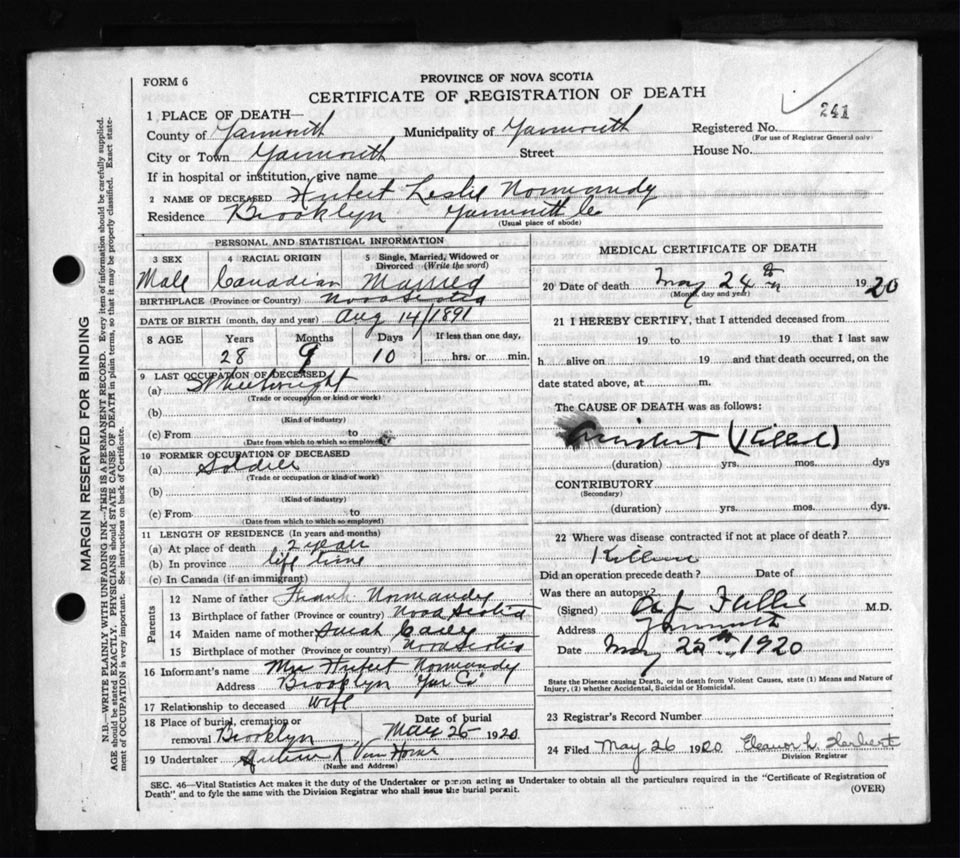 FORM 6
PROVINCE OF NOVA SCOTIA
CERTIFICATE OF REGISTRATION OF DEATH
241
1 PLACE OF DEATH—
County of Yarmouth Municipality of Yarmouth Registered No.
(For use of Registrar General only)
City or Town Yarmouth Street House No.
If in hospital or institution, give name
2 NAME OF DECEASED Hubert Leslie Normandy
Residence Brooklyn Yarmouth Co
(Usual place of abode)
PERSONAL AND STATISTICAL INFORMATION
3 SEX 4 RACIAL ORIGIN 5 Single, Married, Widowed or Divorced (Write the word)
Male Canadian Married
BIRTHPLACE (Province or Country) Nova Scotia
DATE OF BIRTH (month, day and year) Aug 14/1891
8 AGE Years Months Days If less than one day,
28 9 10 hrs. or min.
9 LAST OCCUPATION OF DECEASED
(a) Wheelwright
(Trade or occupation or kind or work)
(b)
(Kind of industry)
(c) From to
(Date from which to which so employed)
10 FORMER OCCUPATION OF DECEASED
(a) Soldier
(Trade or occupation or kind of work)
(b)
(Kind of industry)
(c) From to
(Date from which to which so employed)
11 LENGTH OF RESIDENCE (In years and months)
(a) At place of death 2 year
(b) In province life time
(c) In Canada (if an immigrant)
Parents
12 Name of father Frank Normandy
13 Birthplace of father (Province or country) Nova Scotia
14 Maiden name of mother Sarah Casey
15 Birthplace of mother (Province or country) Nova Scotia
16 Informant's name Mrs Hubert Normandy
Address Brooklyn Yar Co
17 Relationship to deceased Wife
18 Place of burial, cremation or removal Brooklyn Date of burial May 26 1920
19 Undertaker Van Horne
(Name and Address)
MEDICAL CERTIFICATE OF DEATH
20 Date of death May 24th 1920
(Month, day and year)
21 I HEREBY CERTIFY, that I attended deceased from
19 to 19 that I last saw
h alive on 19 and that death occurred, on the
date stated above, at m.
The CAUSE OF DEATH was as follows:
Accident (Killed)
(duration) yrs. mos. dys
CONTRIBUTORY
(Secondary)
(duration) yrs. mos. dys
22 Where was disease contracted if not at place of death?
Killed
Did an operation precede death? Date of
Was there an autopsy?
(Signed) Fuller M.D.
Address Yarmouth
Date May 1920
State the Disease causing Death, or in death from Violent Causes, state (1) Means and Nature of
Injury, (2) whether Accidental, Suicidal or Homicidal.
23 Registrar's Record Number
24 Filed May 26 1920 Eleanor L. Herbert
Division Registrar
SEC. 46—Vital Statistics Act makes it the duty of the Undertaker or person acting as Undertaker to obtain all the particulars required in the "Certificate of Registration of
Death" and to fyle the same with the Division Registrar who shall issue the burial permit.
(OVER)
MARGIN RESERVED FOR BINDING
N.B.—WRITE PLAINLY WITH UNFADING INK—THIS IS A PERMANENT RECORD. Every item of information should be carefully supplied.
AGE should be stated EXACTLY. PHYSICIANS should STATE CAUSE OF DEATH in plain terms, so that it may be properly classified. Exact statement
of OCCUPATION is very important. See instructions on back of Certificate.